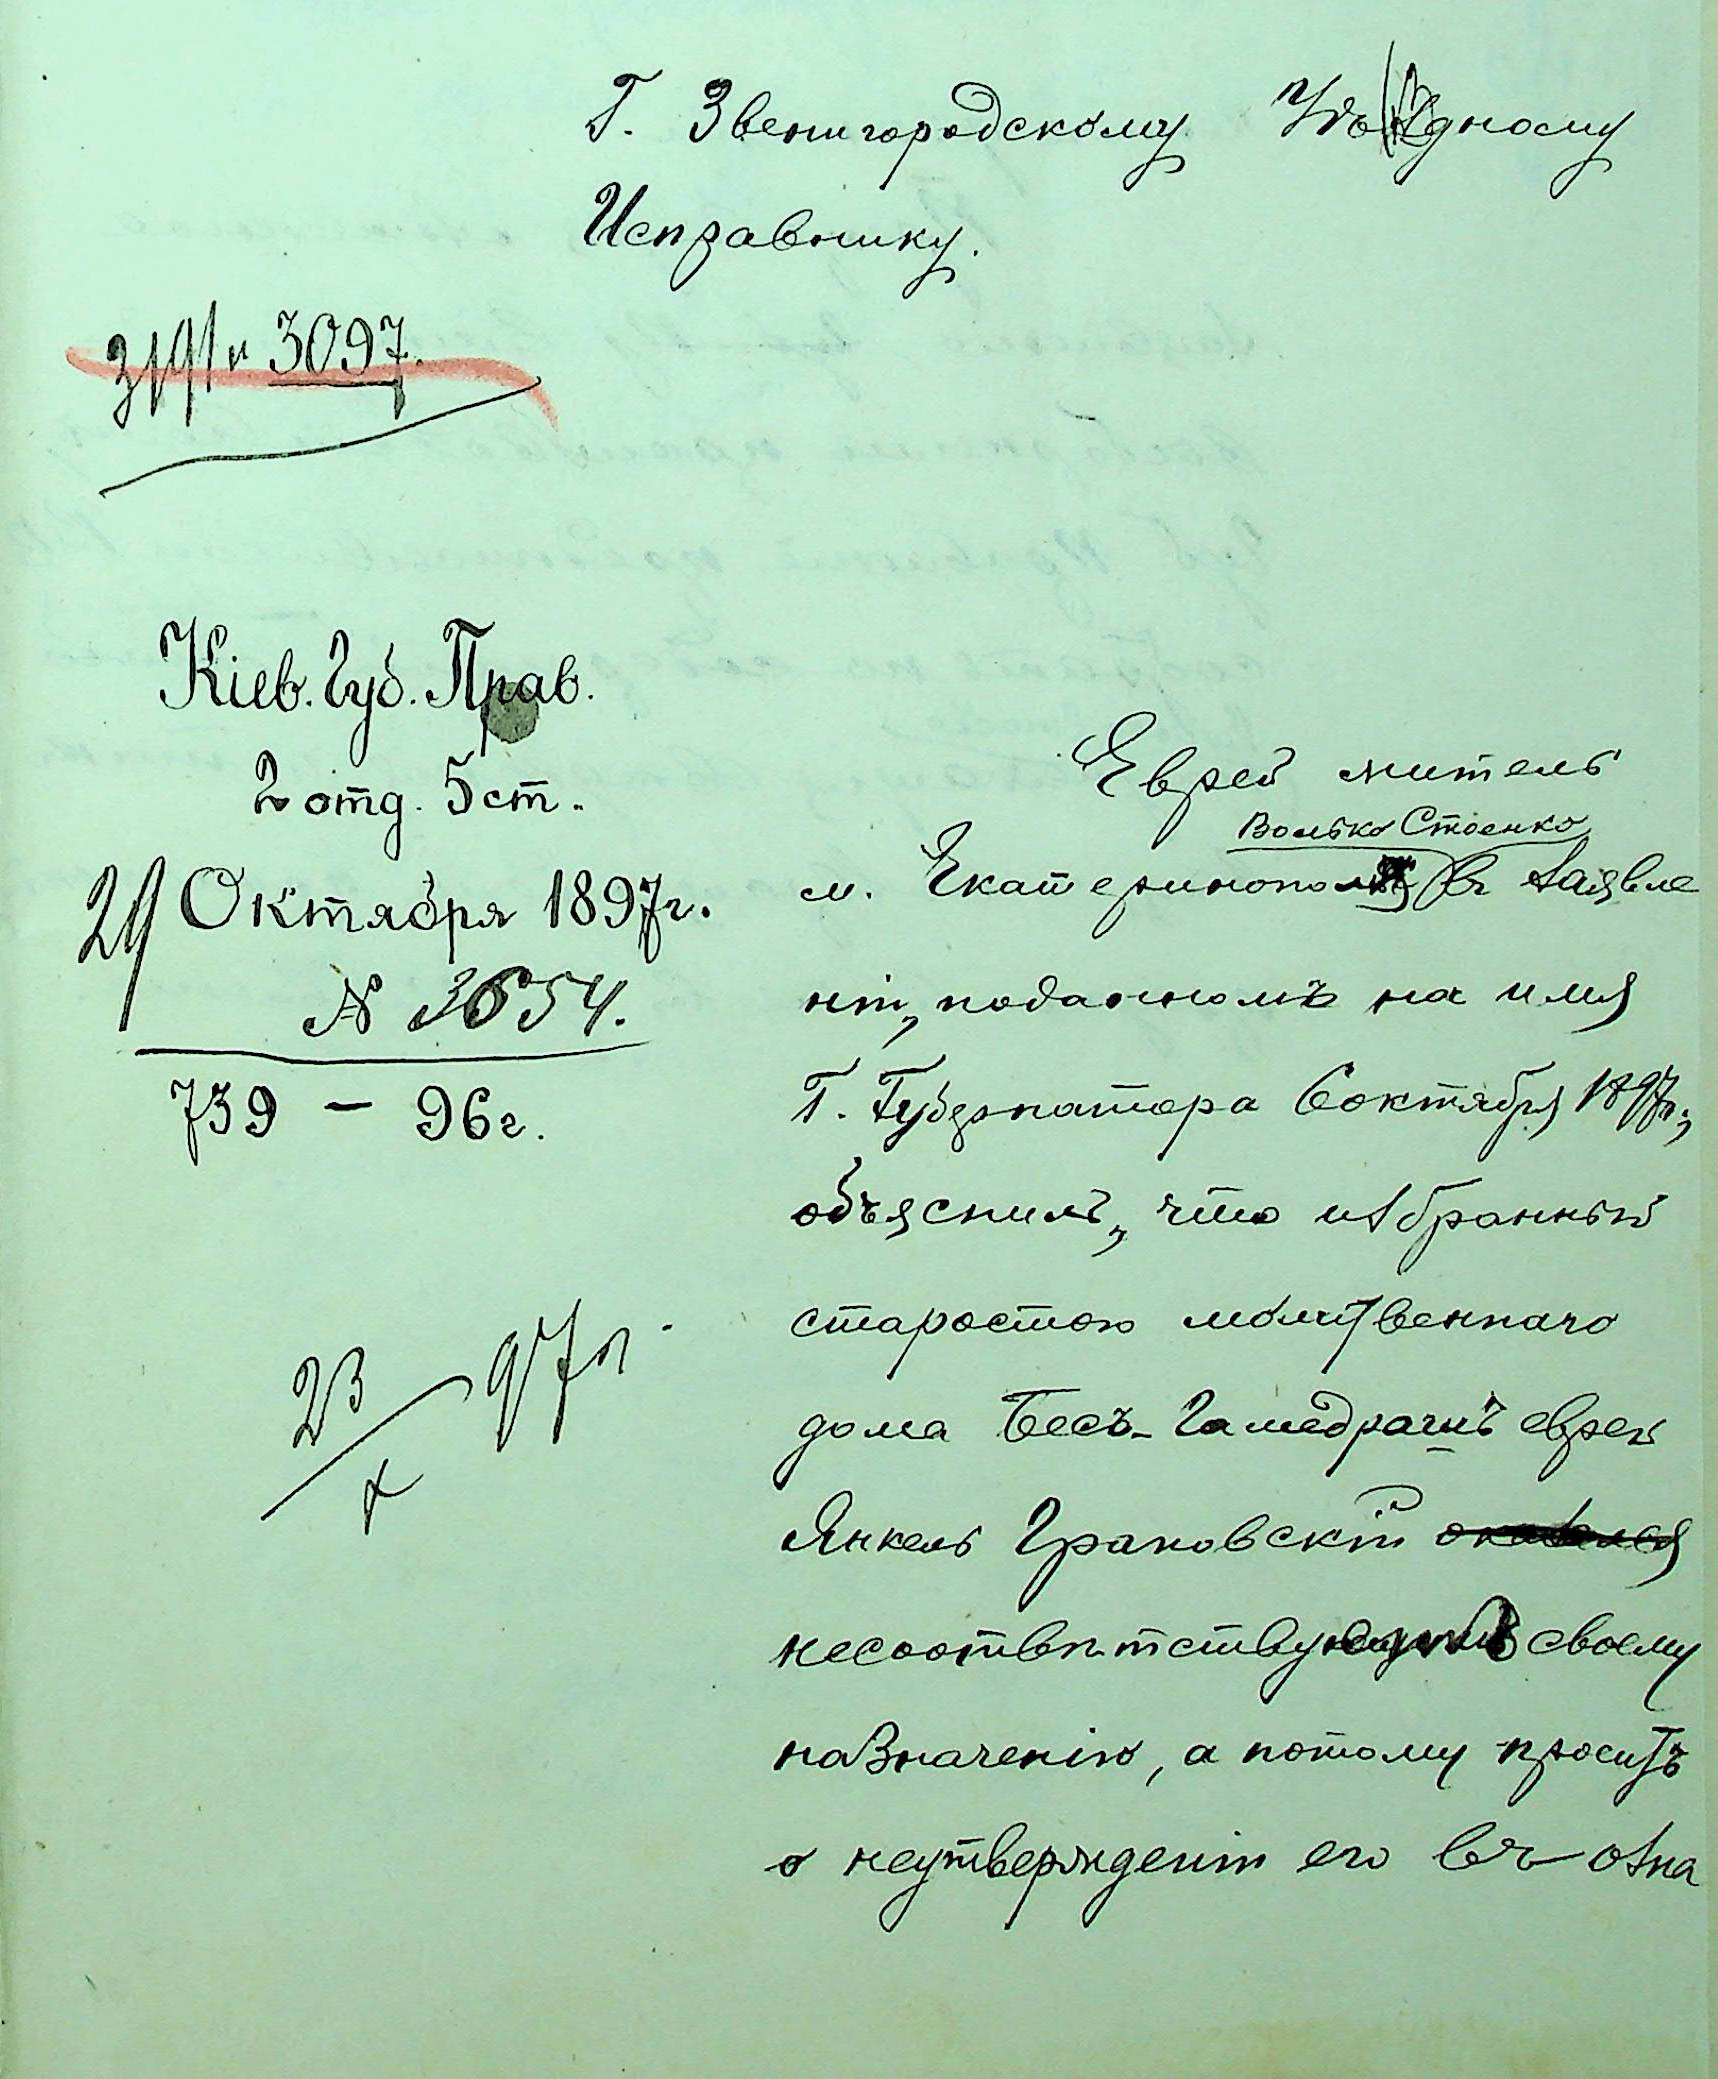 Г. Звенигородскому Уѣздному
Исправнику.
3191 и 3097.
Кіев. Губ. Прав.
2 отд. 5 ст.
29 Октября 1897 г.
№ 3654.
739 – 96 г.
23/X 97 г.
Еврей житель
Волько Стоенко
м. Екатеринополя въ заявле
ніи, поданномъ на имя
Г. Губернатора 6 октября 1897 г.,
объяснилъ, что избранный
старостою молитвеннаго
дома Бесъ-Гамедрашъ еврей
Янкель Грановскій оказался
несоответствующимъ своему
назначенію, а потому проситъ
о неутвержденіи его въ озна